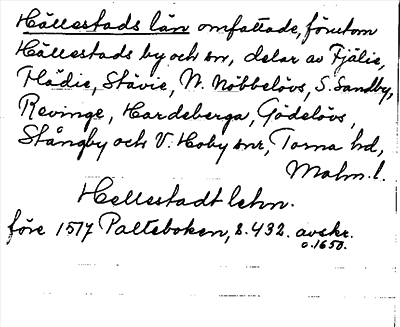 Hällestads län omfattade, förutom
Hällestads by och sn, delar av Fjälie,
Flädie, Stävie, N. Nöbbelövs, S. Sandby,
Revinge, Hardeberga, Gödelövs,
Stångby och V. Hoby snr, Torna hd,
Malm. l.
Hellestadt lehn.
före 1517 Palteboken, s. 432. avskr.
o. 1650.